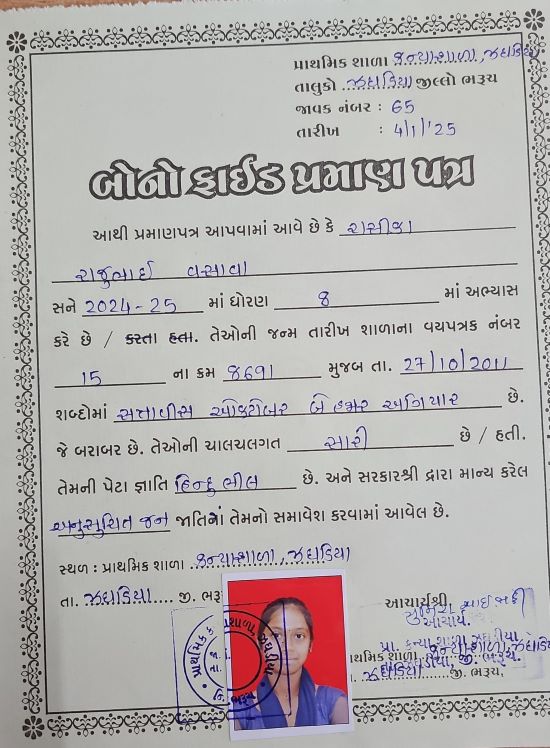 પ્રાથમિક શાળા કન્યાશાળા, ઝઘડિયા
તાલુકો ઝઘડિયા જીલ્લો ભરૂચ
જાવક નંબર : 65
તારીખ : 4/1/'25
બોનોફાઈડ પ્રમાણ પત્ર
આથી પ્રમાણપત્ર આપવામાં આવે છે કે રાસીકા
રાજુભાઈ વસાવા
સને 2024-25 માં ધોરણ 8 માં અભ્યાસ
કરે છે / કરતા હતા. તેઓની જન્મ તારીખ શાળાના વયપત્રક નંબર
15 ના ક્રમ 8691 મુજબ તા. 27/10/2011
શબ્દોમાં સત્તાવીસ ઓક્ટોબર બે હજાર અગિયાર છે.
જે બરાબર છે. તેઓની ચાલચલગત સારી છે / હતી.
તેમની પેટા જ્ઞાતિ હિન્દુ ભીલ છે. અને સરકારશ્રી દ્વારા માન્ય કરેલ
અનુસુચિત જન જાતિમાં તેમનો સમાવેશ કરવામાં આવેલ છે.
સ્થળ : પ્રાથમિક શાળા કન્યાશાળા, ઝઘડિયા
તા. ઝઘડિયા જી. ભરૂ
આચાર્યશ્રી
આચાર્ય.
પ્રા. કન્યા શાળા ઝઘડીયા
પ્રાથમિક શાળા કન્યાશાળા, ઝઘડિયા
ઝઘડિયા જી. ભરૂચ.